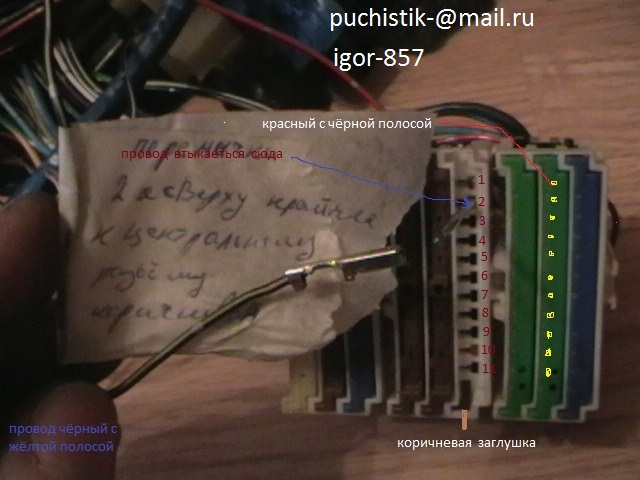 puchistik-@mail.ru
igor-857
красный с чёрной полосой
провод втыкаеться сюда
перемычка
2 я сверху крайнее
к центральному
разъёму
1
2
3
4
5
6
7
8
9
10
11
провод чёрный с
жёлтой полосой
коричневая заглушка